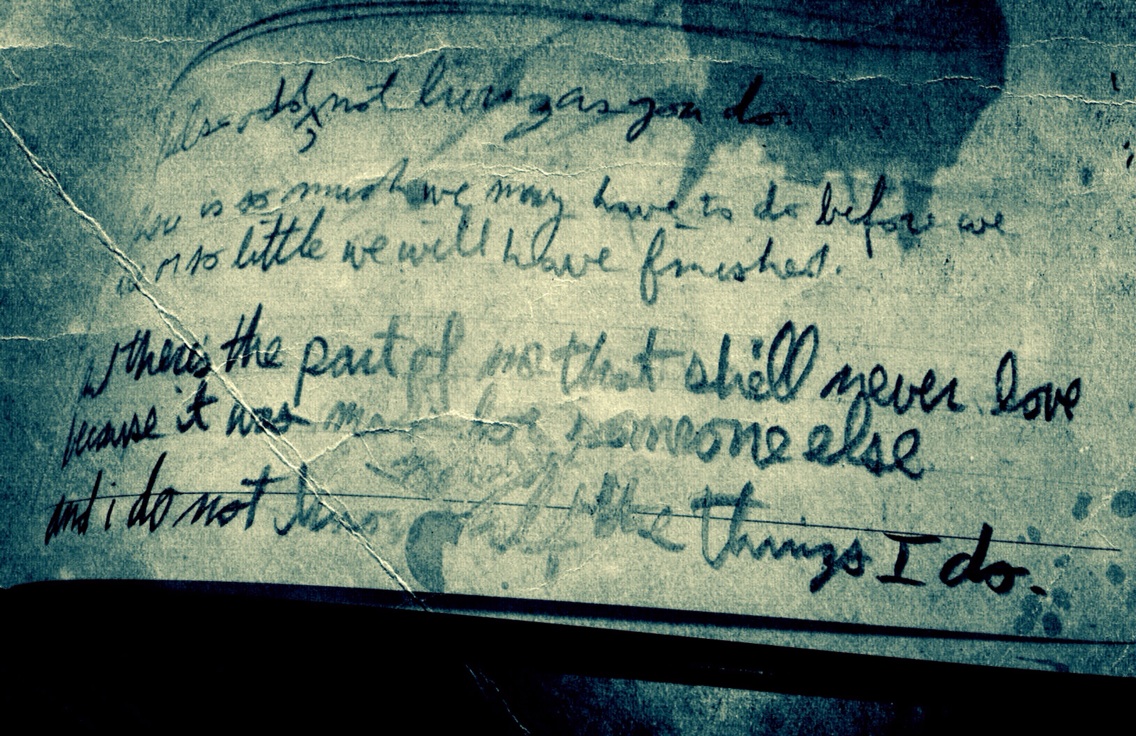 not living as you do.
is so much we may have to do before we
so little we will have finished.
there's the part of me that shall never love
because it was made for someone else
and i do not know half the things I do.